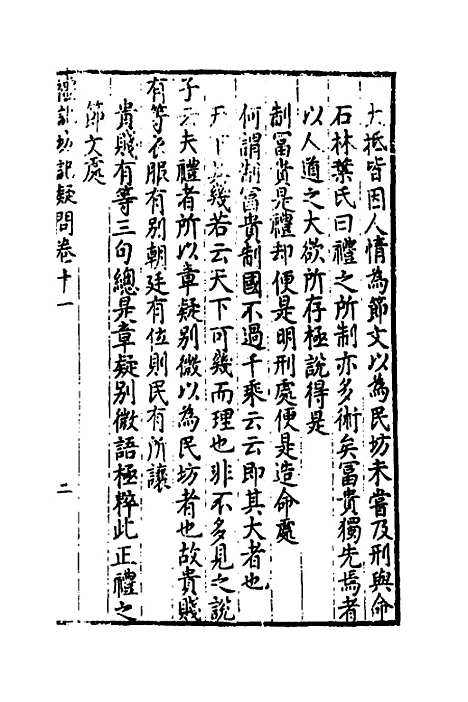 大抵皆因人情為節文以為民坊未嘗及刑與命
石林葉氏曰禮之所制亦多術矣冨貴獨先焉者
以人道之大欲所存極說得是
制冨貴是禮却便是明刑處便是造命處
何謂制冨貴制國不過千乘云云即其大者也
天下其幾若云天下可幾而理也非不多見之說
子云夫禮者所以章疑别微以為民坊者也故貴賤
有等衣服有别朝廷有位則民有所讓
貴賤有等三句總是章疑别微語極粹此正禮之
節文處
禮記坊記疑問卷十一
二